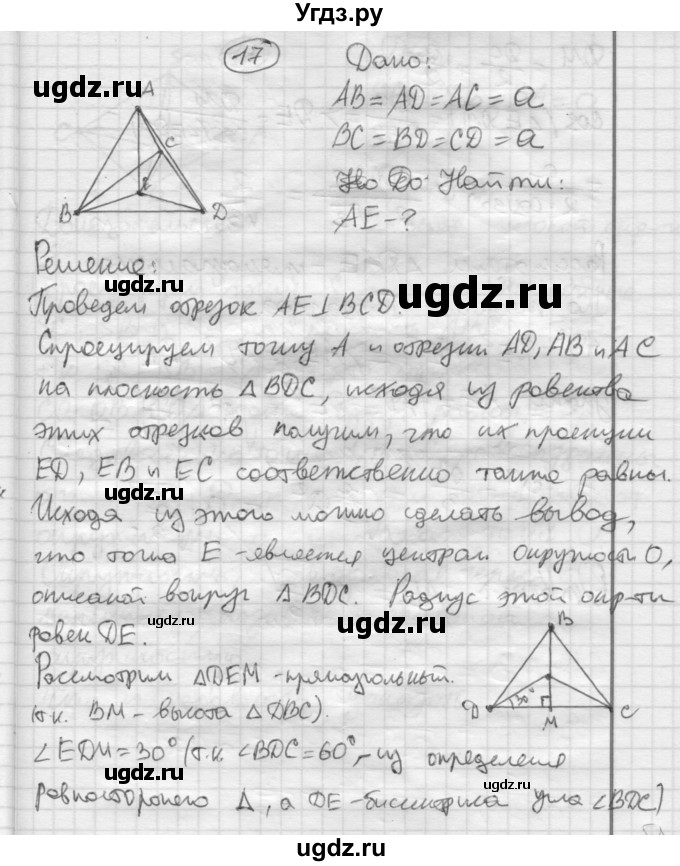 Угду.ру
17
Дано:
AB = AD = AC = a
BC = BD = CD = a
Найти:
AE - ?
A
C
E
B
D
Решение:
Проведем отрезок AE⊥BCD.
Спроецируем точку A и отрезки AD, AB и AC
на плоскость △BDC, исходя из равенства
этих отрезков получим, что их проекции
ED, EB и EC соответственно также равны.
Исходя из этого можно сделать вывод,
что точка E - является центром окружности O,
описаной вокруг △BDC. Радиус этой окр-ти
равен DE.
Рассмотрим △DEM - прямоугольный.
(т.к. BM - высота △DBC).
∠EDM = 30° (т.к. ∠BDC = 60°, - из определения
равностороннего △, а DE - биссектриса угла ∠BDC)
B
D
30°
M
C
ugdz.ru
ugdz.ru
ugdz.ru
ugdz.ru
ugdz.ru
ugdz.ru
ugdz.ru
ugdz.ru
ugdz.ru
©ugdz.ru